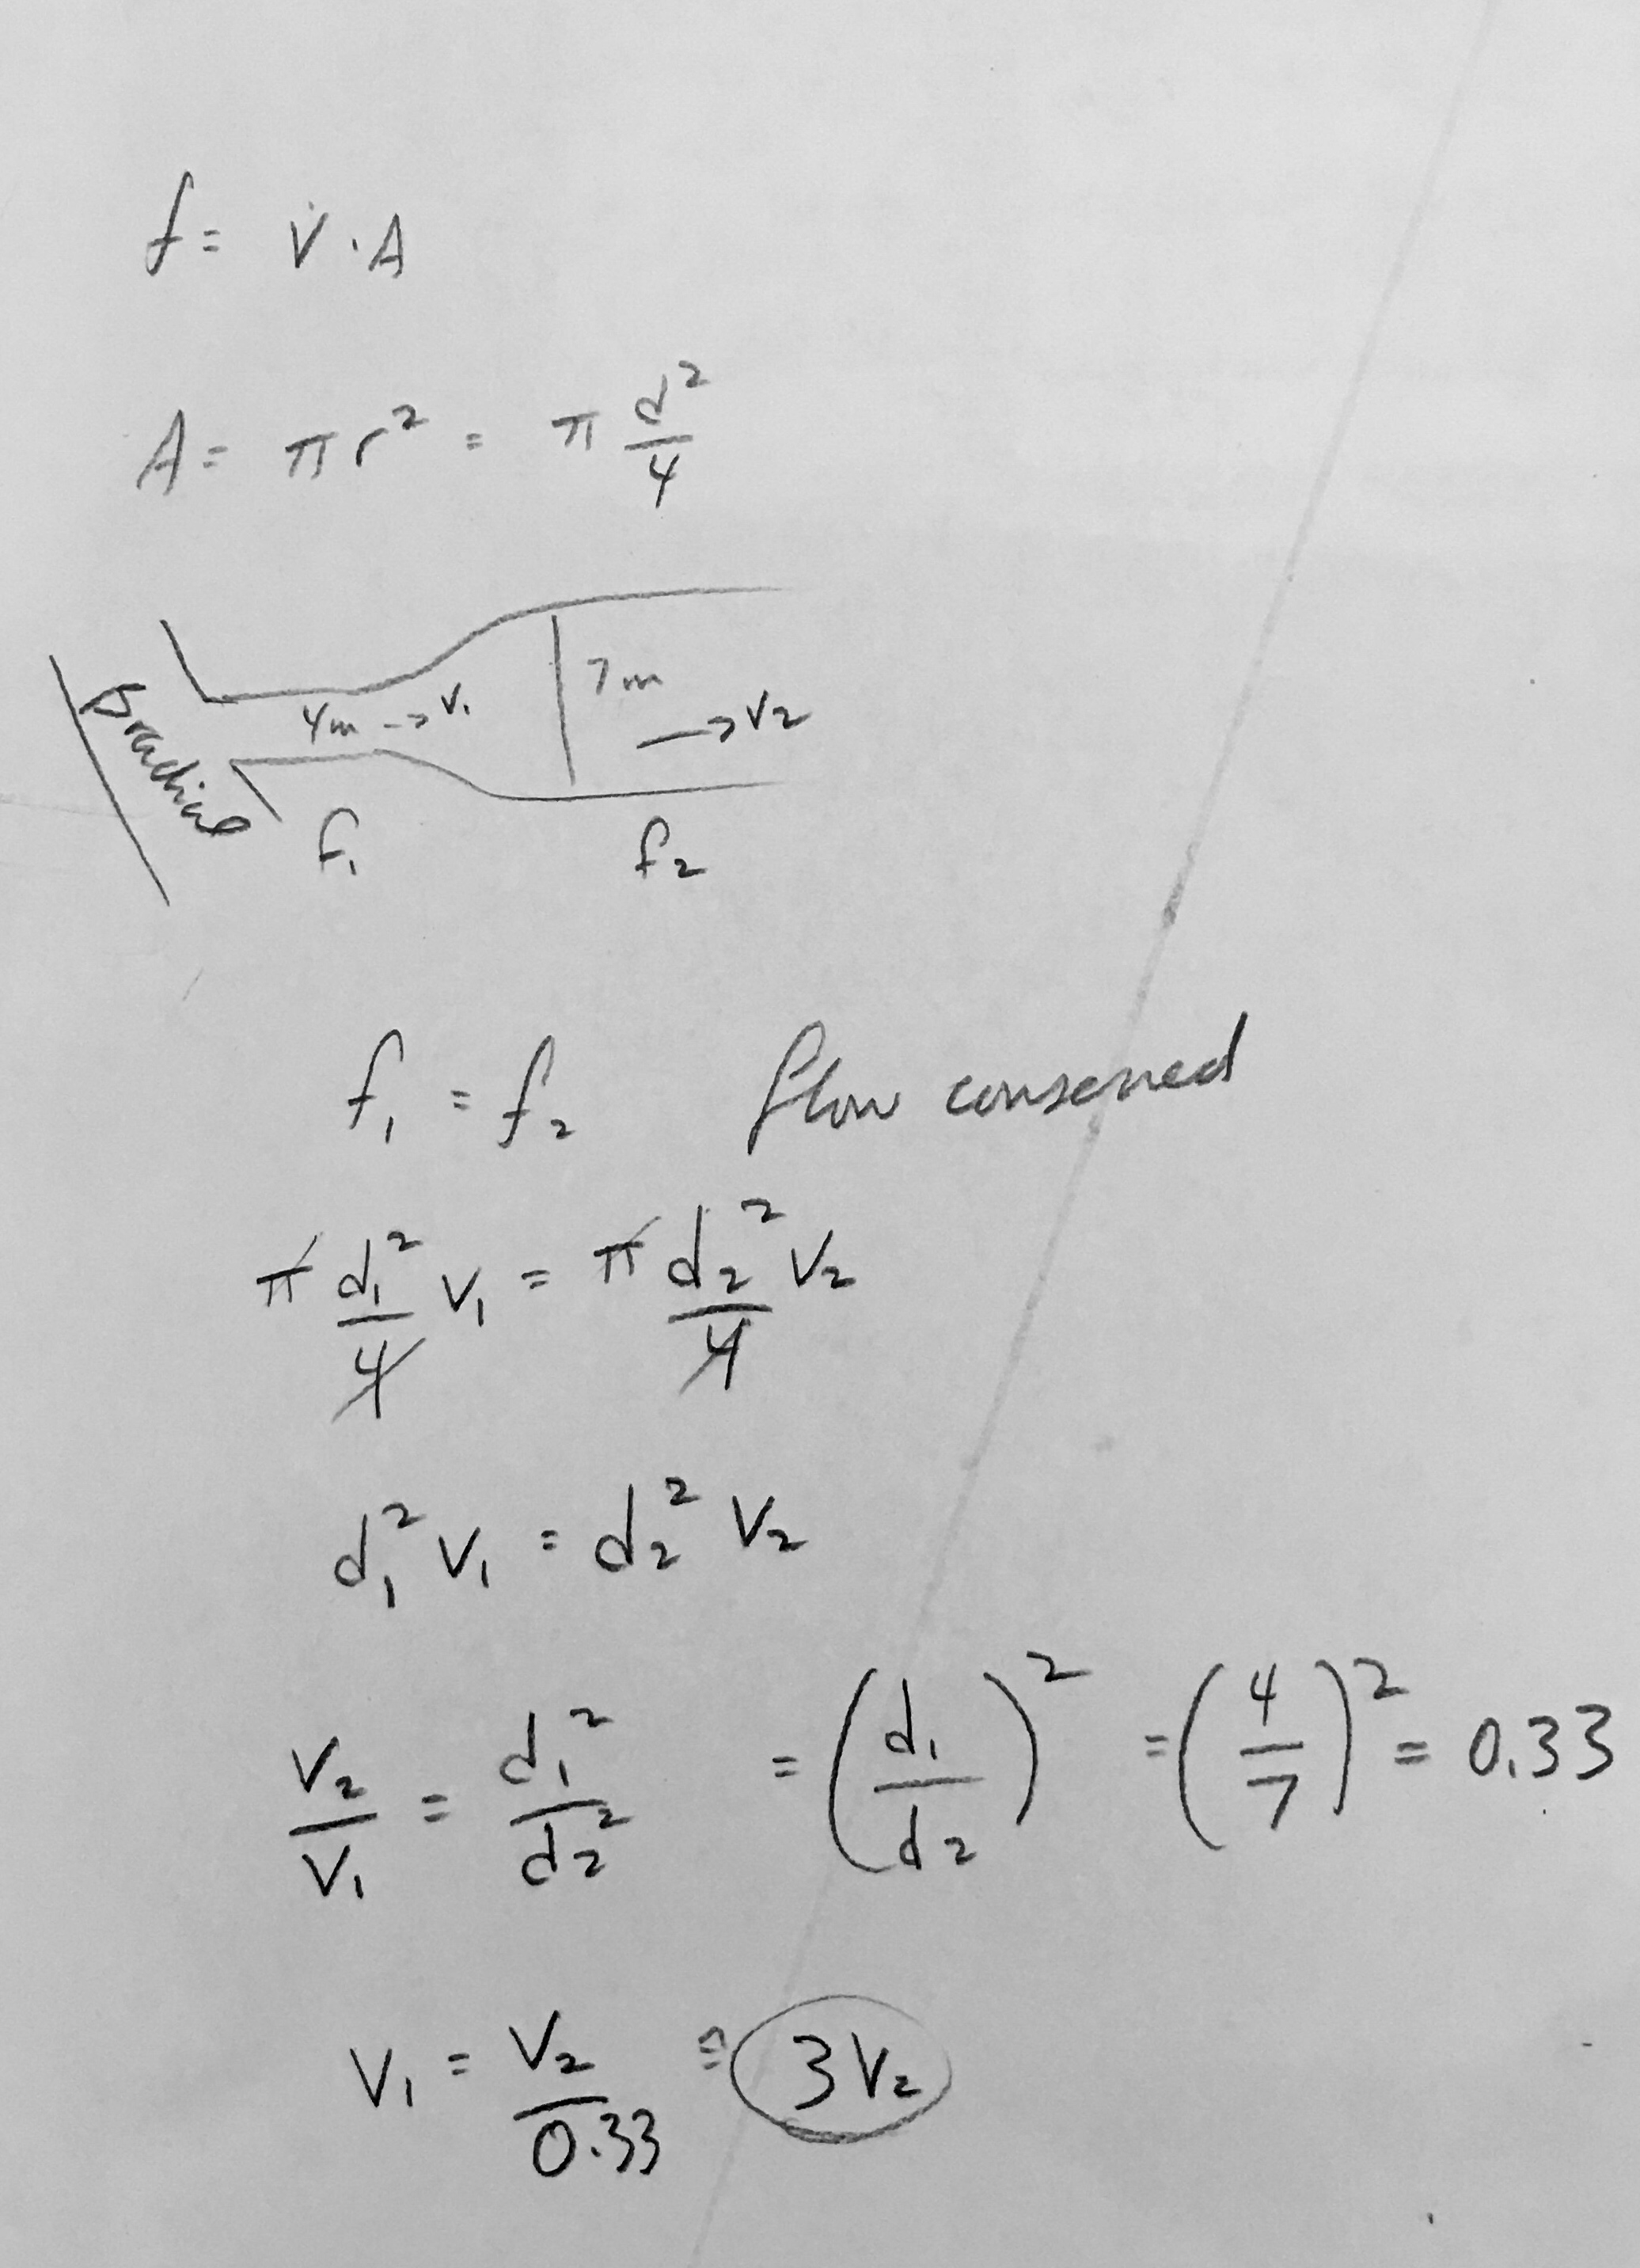 f = V̇ · A
A = πr² = π d²/4
Brachial
4m -> V₁
7m
-> V₂
f₁ f₂
f₁ = f₂ flow conserved
π d₁²/4 V₁ = π d₂²/4 V₂
d₁² V₁ = d₂² V₂
V₂/V₁ = d₁²/d₂² = (d₁/d₂)² = (4/7)² = 0.33
V₁ = V₂/0.33 ≅ 3V₂